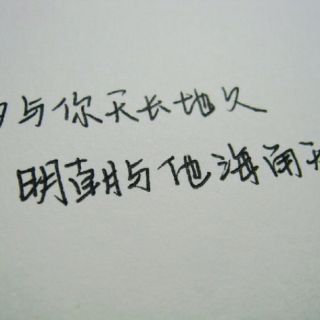 与你天长地久
明朝与他海阔天